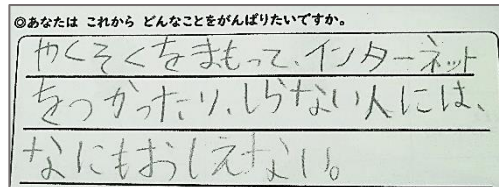 ◎あなたは これから どんなことをがんばりたいですか。
やくそくをまもって、インターネット
をつかったり、しらない人には、
なにもおしえない。